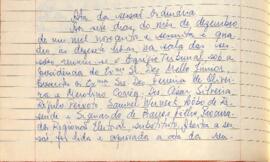 Ata da sessão ordinária
Aos seis dias do mês de dezembro
de um mil novecentos e sessenta e qua-
tro, às dezesete horas, na sala das ses-
sões, reuniu-se o Egrégio Tribunal, sob a
presidência do Exmo Sr. Des. Mello Júnior,
presentes os Exmos Srs. Drs. Ferreira de Olivei-
ra e Merolino Corrêa, Drs. César Silveira,
Peixoto, Samuel Werneck, Lobo de Re-
zende e Fernando de
Regional Eleitoral substituto. Aberta a ses-
são foi lida e aprovada a ata da